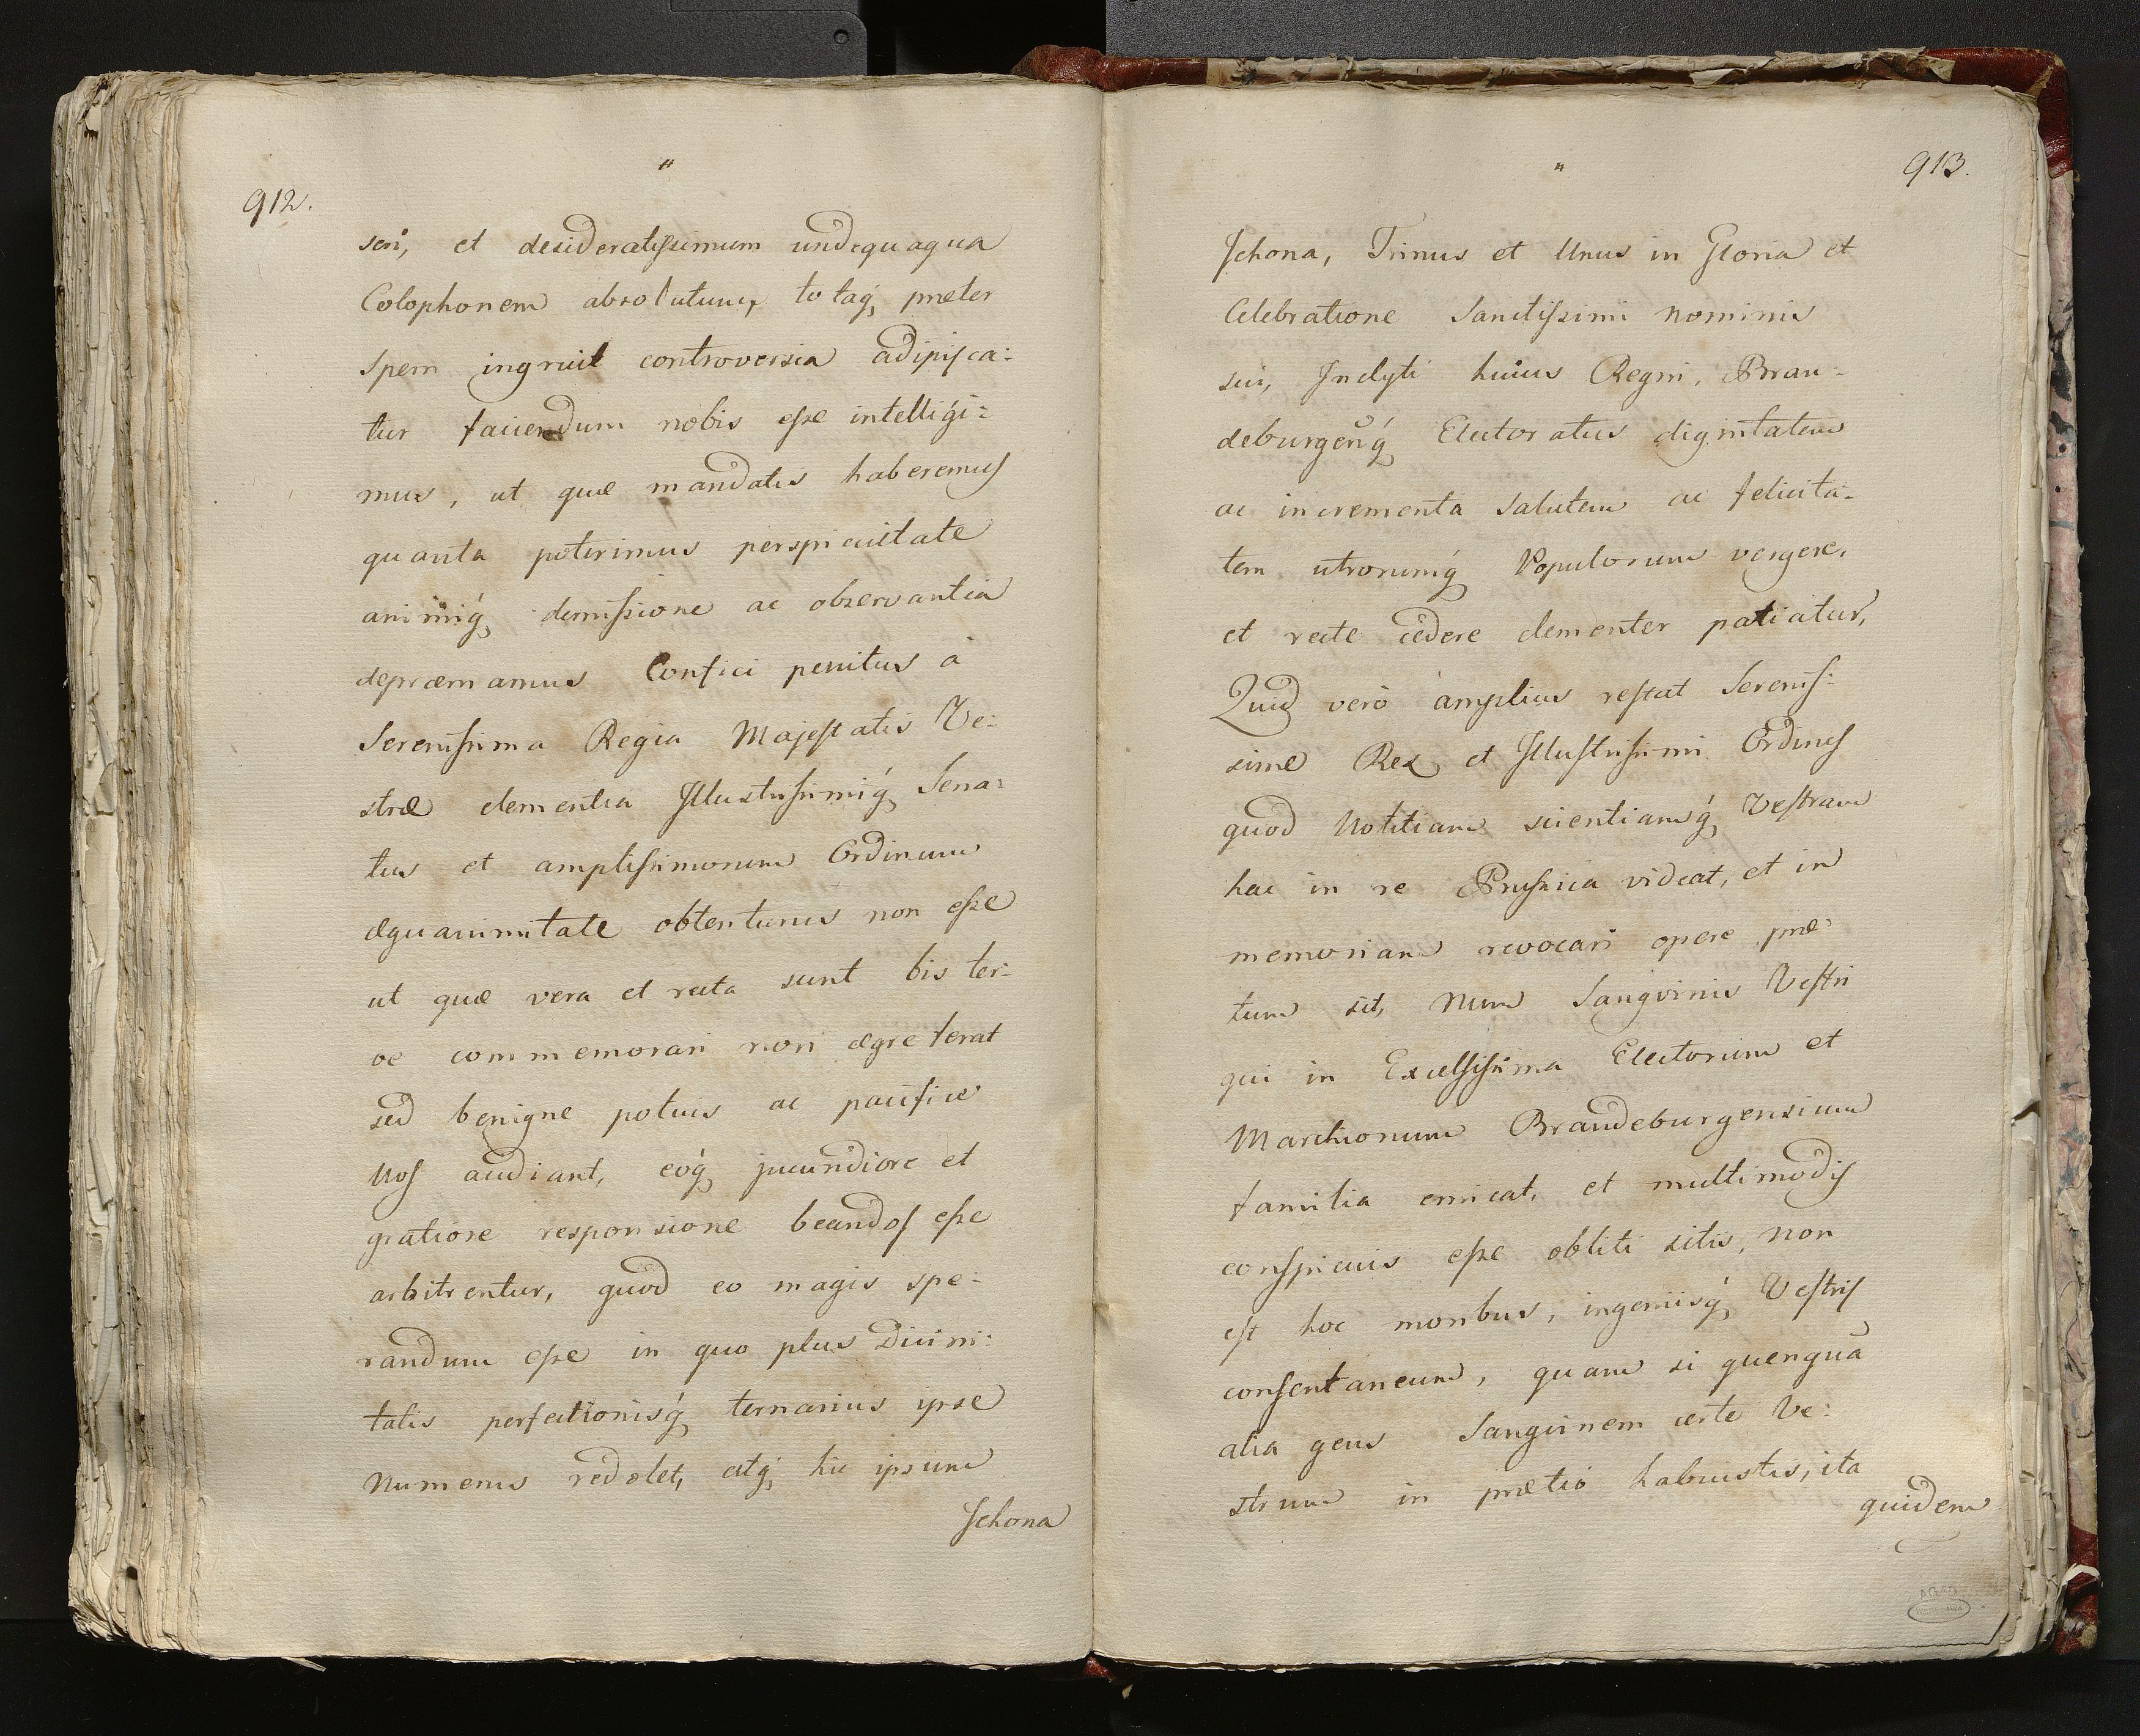 "
912.
seri, et desideratissimum undequaqua
Colophonem absolutum, totaq́ꝫ præter
spem ingruit controversia adipisca:
tur faciendum nobis esse intelligi:
mus, ut quæ mandatis haberemus
quanta poterimus perspicuitate
animiq́ꝫ demissione ac observantia
depræmamus Confici penitus à
Serenissima Regia Majestatis Ve:
stræ clementia Illustrissimiq́ꝫ Sena:
tus et amplissimorum Ordinum
æquanimitate obtenturus non esse
ut quæ vera et recta sunt bis ter:
ve commemorari non ægre ferat
sed benigne potuis ac pacifice
Nos audiant, eoq́ꝫ jucundiore et
gratiore responsione beandos esse
arbitrentur, quod eo magis spe:
randum esse in quo plus Divini:
tatis perfectionisq́ꝫ ternarius ipse
Numerus redolet, atq́ꝫ hic ipsum
Jehona
"
913.
Jehona, Trinus et Unus in Gloria et
Celebratione Sanctissimi nominis
sui, Inclyti huius Regni, Bran-
deburgen̄q́ꝫ Electoratus dignitatem
ac incrementa salutem ac felicita-
tem utrorumq́ꝫ Populorum vergere,
et recte cedere clementer patiatur,
Quid verò amplius restat Serenis:
sime Rex et Illustrissimi Ordines
quod Notitiam scientiamq́ꝫ Vestram
hac in re Prussica videat, et in
memoriam revocari opere præ:
tum sit, Num Sangvinis Vestri
qui in Excelsissima Electorum et
Marchionum Brandeburgensium
familia emicat, et multimodis
conspicuis esse obliti sitis, non
est hoc moribus, ingeniisq́ꝫ Vestris
consentaneum, quam si quenquā
alia gens Sanguinem certe Ve:
strum in prætio habuistis, ita
quidem